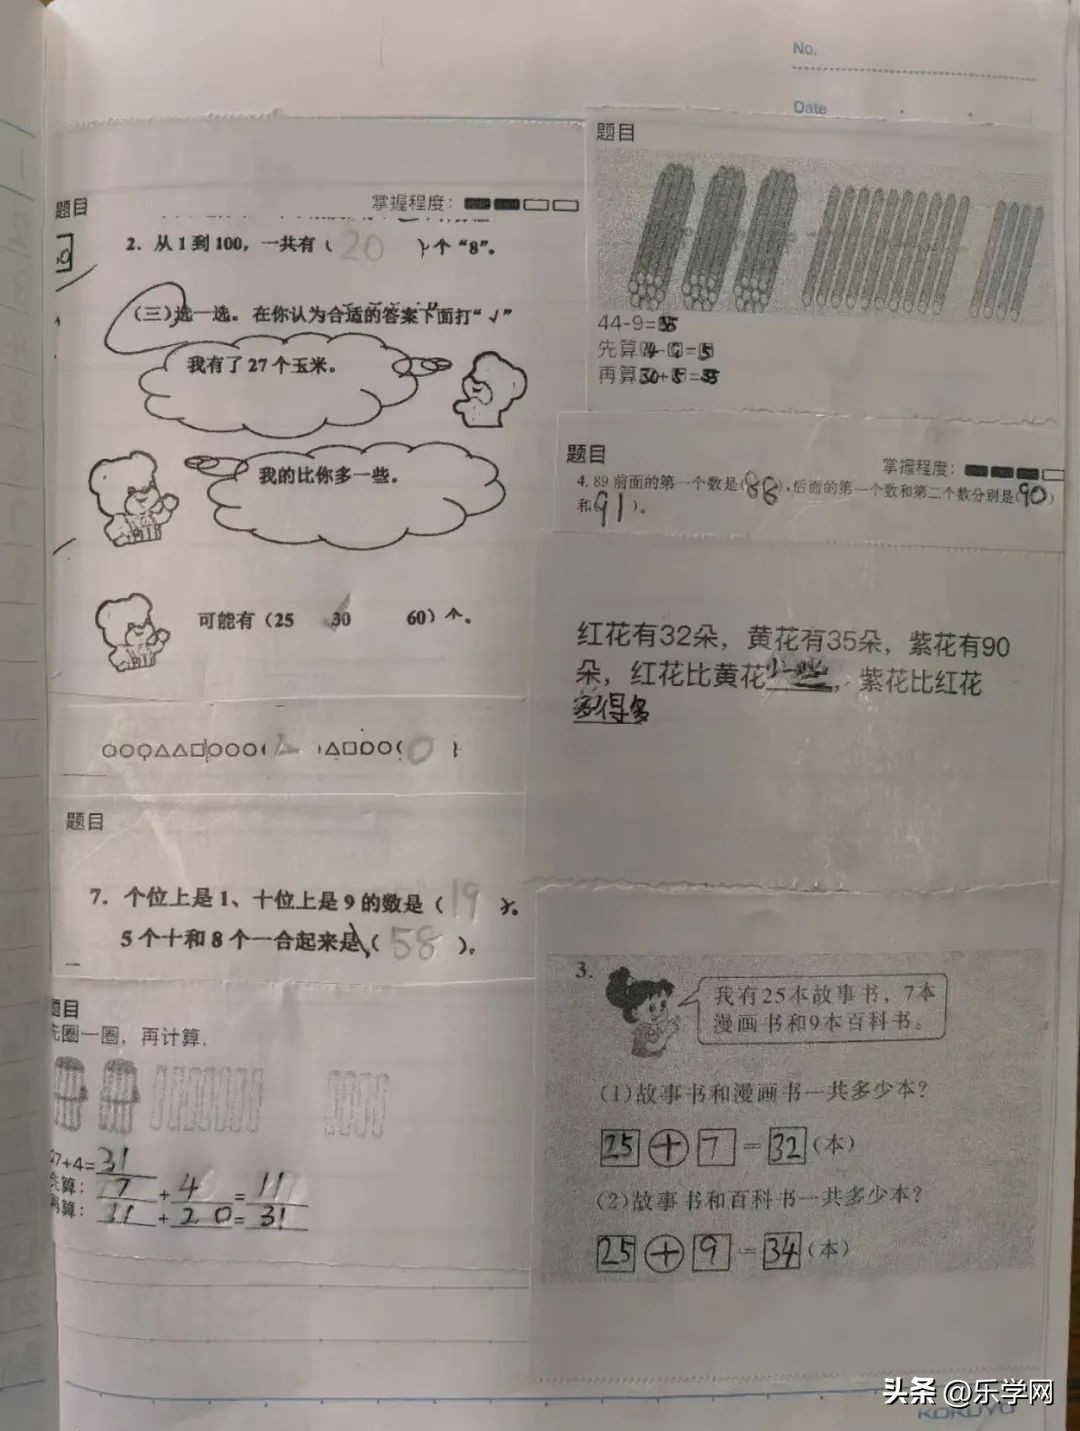 No.
Date
题目
掌握程度：
2. 从1到100，一共有（ 20 ）个“8”。
（三）选一选。在你认为合适的答案下面打“√”
我有了27个玉米。
我的比你多一些。
可能有（25 30 60）个。
○○○△△□○○○( )△□○○( 0 )
题目
7. 个位上是1、十位上是9的数是（ 19 ）。
5个十和8个一合起来是（ 58 ）。
题目
先圈一圈，再计算.
27+4=31
先算： 7 + 4 = 11
再算： 31 + 20 = 31
题目
44-9=35
先算14-9=5
再算30+5=35
题目
掌握程度：
4. 89前面的第一个数是(88)、后面的第一个数和第二个数分别是(90)
和(91)。
红花有32朵，黄花有35朵，紫花有90
朵，红花比黄花少一些，紫花比红花
多得多
3.
我有25本故事书，7本
漫画书和9本百科书。
(1)故事书和漫画书一共多少本？
25 + 7 = 32 (本)
(2)故事书和百科书一共多少本？
25 + 9 = 34 (本)
头条 @乐学网
KOKUYO